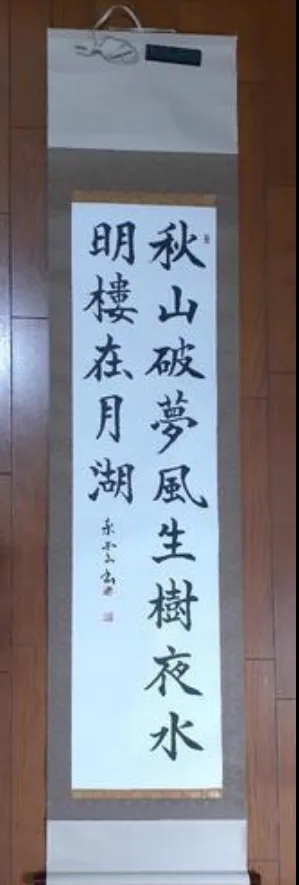 秋山破夢風生樹夜水
明樓在月湖